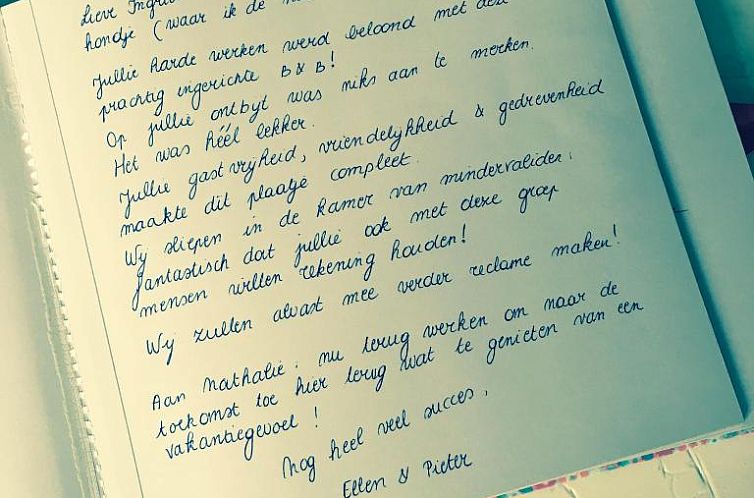 Lieve Ingrid
hondje (waar ik de
Jullie harde werken werd beloond met deze
prachtig ingerichte B & B!
Op jullie ontbyt was niks aan te merken.
Het was héél lekker.
Jullie gastvrijheid, vriendelykheid & gedrevenheid
maakte dit plaatje compleet.
Wy sliepen in de kamer van mindervalider,
fantastisch dat jullie ook met deze groep
mensen willen rekening houden!
Wy zullen alvast mee verder reclame maken!
Aan Nathalie: nu terug werken om naar de
toekomst toe hier terug wat te genieten van een
vakantiegevoel!
Nog heel veel succes,
Ellen & Pieter